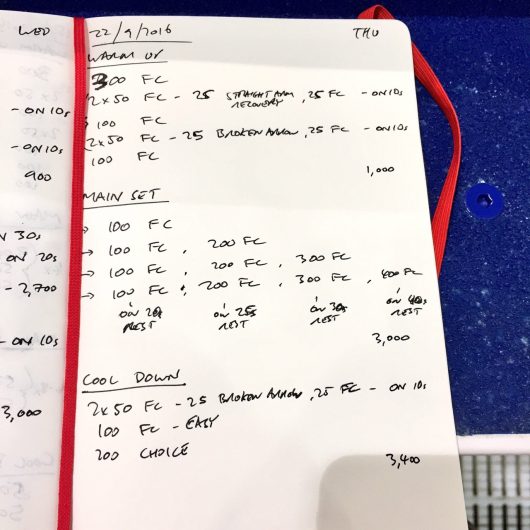 WED
- ON 10s
- ON 10s
900
N 30s
ON 20s
- 2,700
- ON 10s
3,000
22/9/2016 THU
WARM UP
300 FC
2x50 FC - 25 STRAIGHT ARM RECOVERY, 25 FC - ON 10s
100 FC
2x50 FC - 25 BROKEN ARROW, 25 FC - ON 10s
100 FC
1,000
MAIN SET
→ 100 FC
→ 100 FC, 200 FC
→ 100 FC, 200 FC, 300 FC
→ 100 FC, 200 FC, 300 FC, 400 FC
ON 20s REST ON 25s REST ON 30s REST ON 40s REST
3,000
COOL DOWN
2x50 FC - 25 BROKEN ARROW, 25 FC - ON 10s
100 FC - EASY
200 CHOICE
3,400